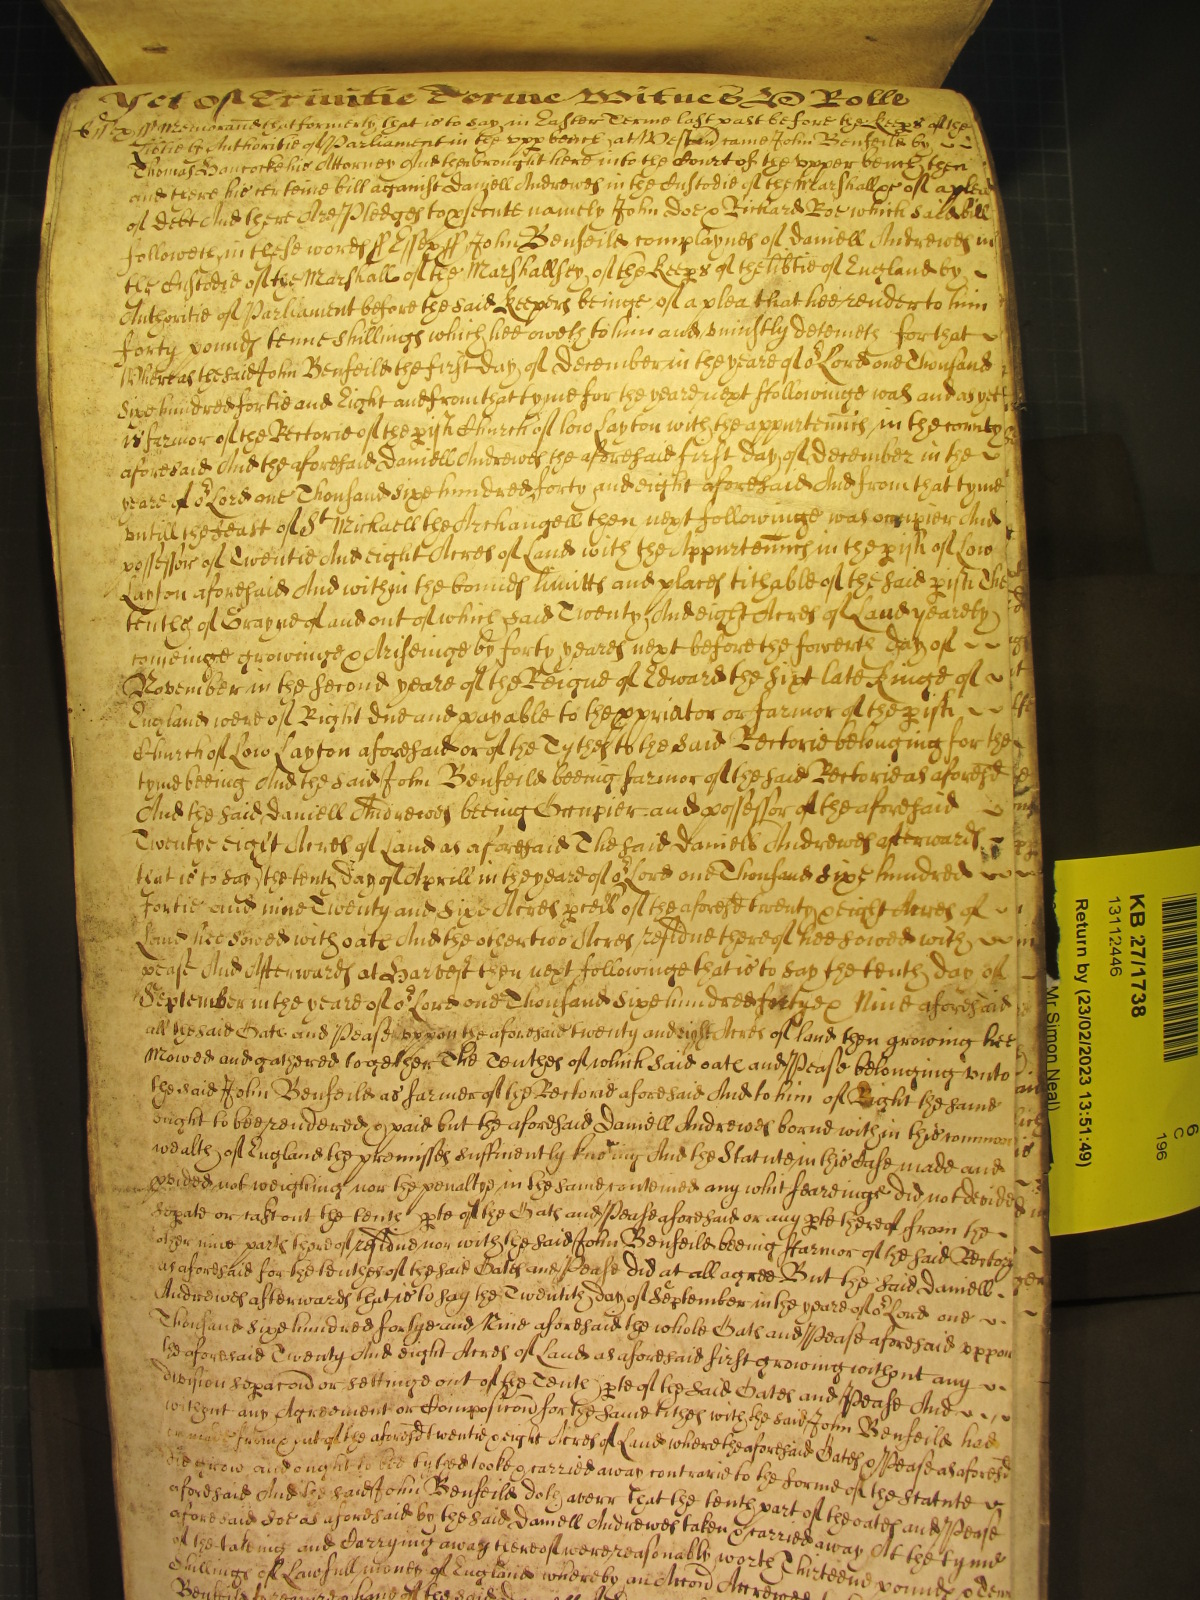 Yet of Trinitie Terme Witnes Rolle
Memorand that formerly that is to say in Easter Terme last past before the Keeps of the
libtie by Authoritie of Parliament in the upp bench at Westm came John Benfeild by
Thomas Hancocke his Attorney And the brought here into the Court of the upper bench then
and there his certeine bill against Daniell Andrewes in the Custodie of the Marshall &c of a plea
of debt And there Are Pledges to psecute namely John Doe & Richard Roe which said bill
followeth in these wordes ss Essex ss John Benfeild complaynes of Daniell Andrewes in
the Custodie of the Marshall of the Marshallsey of the Keeps of the libtie of England by
Authoritie of Parliament before the said Keepers beinge of a plea that hee render to him
forty pounds tenne shillings which hee oweth to him and uniustly deteineth for that
Whereas the said John Benfeild the first day of December in the yeare of or Lord one Thousand
Sixe hundred fortie and Eight and from that tyme for the yeare next ffollowinge was and as yet
is farmor of the Rectorie of the pish Church of low Layton with the appurtennces in the county
aforesaid And the aforesaid Daniell Andrewes the aforesaid first day of December in the
yeare of or Lord one Thousand sixe hundred forty and eight aforesaid And from that tyme
untill the feast of St Michaell the Archangell then next followinge was occupier And
possessor of Twentie And eight Acres of Land with the Appurtennces in the pish of Low
Layton aforesaid And within the bounds limitts and places tithable of the said pish The
tenthes of Grayne of and out of which said Twenty And eight Acres of Land yearely
comeinge growinge & Ariseinge by forty yeares next before the fowerth day of
November in the second yeare of the Reigne of Edward the Sixt late Kinge of
England were of Right due and payable to the ppriator or farmor of the pish
Church of Low Layton aforesaid or of the Tythes to the said Rectorie belonging for the
tyme beeing And the said John Benfeild beeing farmor of the said Rectorie as aforesd
And the said Daniell Andrewes beeing Occupier and possessor of the aforesaid
Twentye eight Acres of Land as aforesaid The said Daniell Andrewes afterwards
that is to say the tenth day of Aprill in the yeare of or Lord one Thousand Sixe hundred
Fortie and nine Twenty and Sixe Acres pcell of the aforesd twenty & eight Acres of
Land hee sowed with oate And the other two Acres residue thereof hee sowed with
pease And Afterwards at Harvest then next followinge that is to say the tenth day of
September in the yeare of or Lord one Thousand Sixe hundred fortye & Nine aforesaid
all the said Oate and Pease uppon the aforesaid twenty and eight Acres of land then growing hee
Mowed and gathered together The Tenthes of which said oate and Pease belonging unto
the said John Benfeild as farmer of the Rectorie aforesaid And to him of Right the same
ought to bee rendered & paid but the aforesaid Daniell Andrewes borne within this common
wealth of England the premisses sufficiently knowing And the Statute in this Case made and
pvided not weighing nor the penaltye in the same conteined any whit feareinge did not devide
sepate or cast out the tenth pte of the Oats and Pease aforesaid or any pte thereof from the
other nine parts thereof residue nor with the said John Benfeild beeing Farmor of the said Rectory
as aforesaid for the tenthes of the said Oates and Pease did at all agree But the said Daniell
Andrewes afterwards that is to say the Twentith day of September in the yeare of or Lord one
Thousand Sixe hundred fortye and Nine aforesaid the whole Oats and Pease aforesaid uppon
the aforesaid Twenty And eight Acres of Land as aforesaid first growing without any
division sepacon or settinge out of the Tenth pte of the said Oates and Pease And
without any Agreement or Composicon for the same tithes with the said John Benfeild had
or made from & out of the aforesd twentie & eight Acres of Land where the aforesaid Oates & Pease as aforesd
did grow and ought to bee tythed tooke & carried away contrarie to the forme of the Statute
aforesaid And the said John Benfeild doth averr that the tenth part of the oates and Pease
aforesaid soe as aforesaid by the said Daniell Andrewes taken & carried away At the tyme
of the takeing and Carrying away thereof were reasonably worth Thirteene pounds & Tenn
Shillings of Lawfull money of England whereby an Accon Accrewed
Benfeild
KB 27/1738
13112446
Return by (23/02/2023 13:51:49)
Mr Simon Neal)
6
C
196